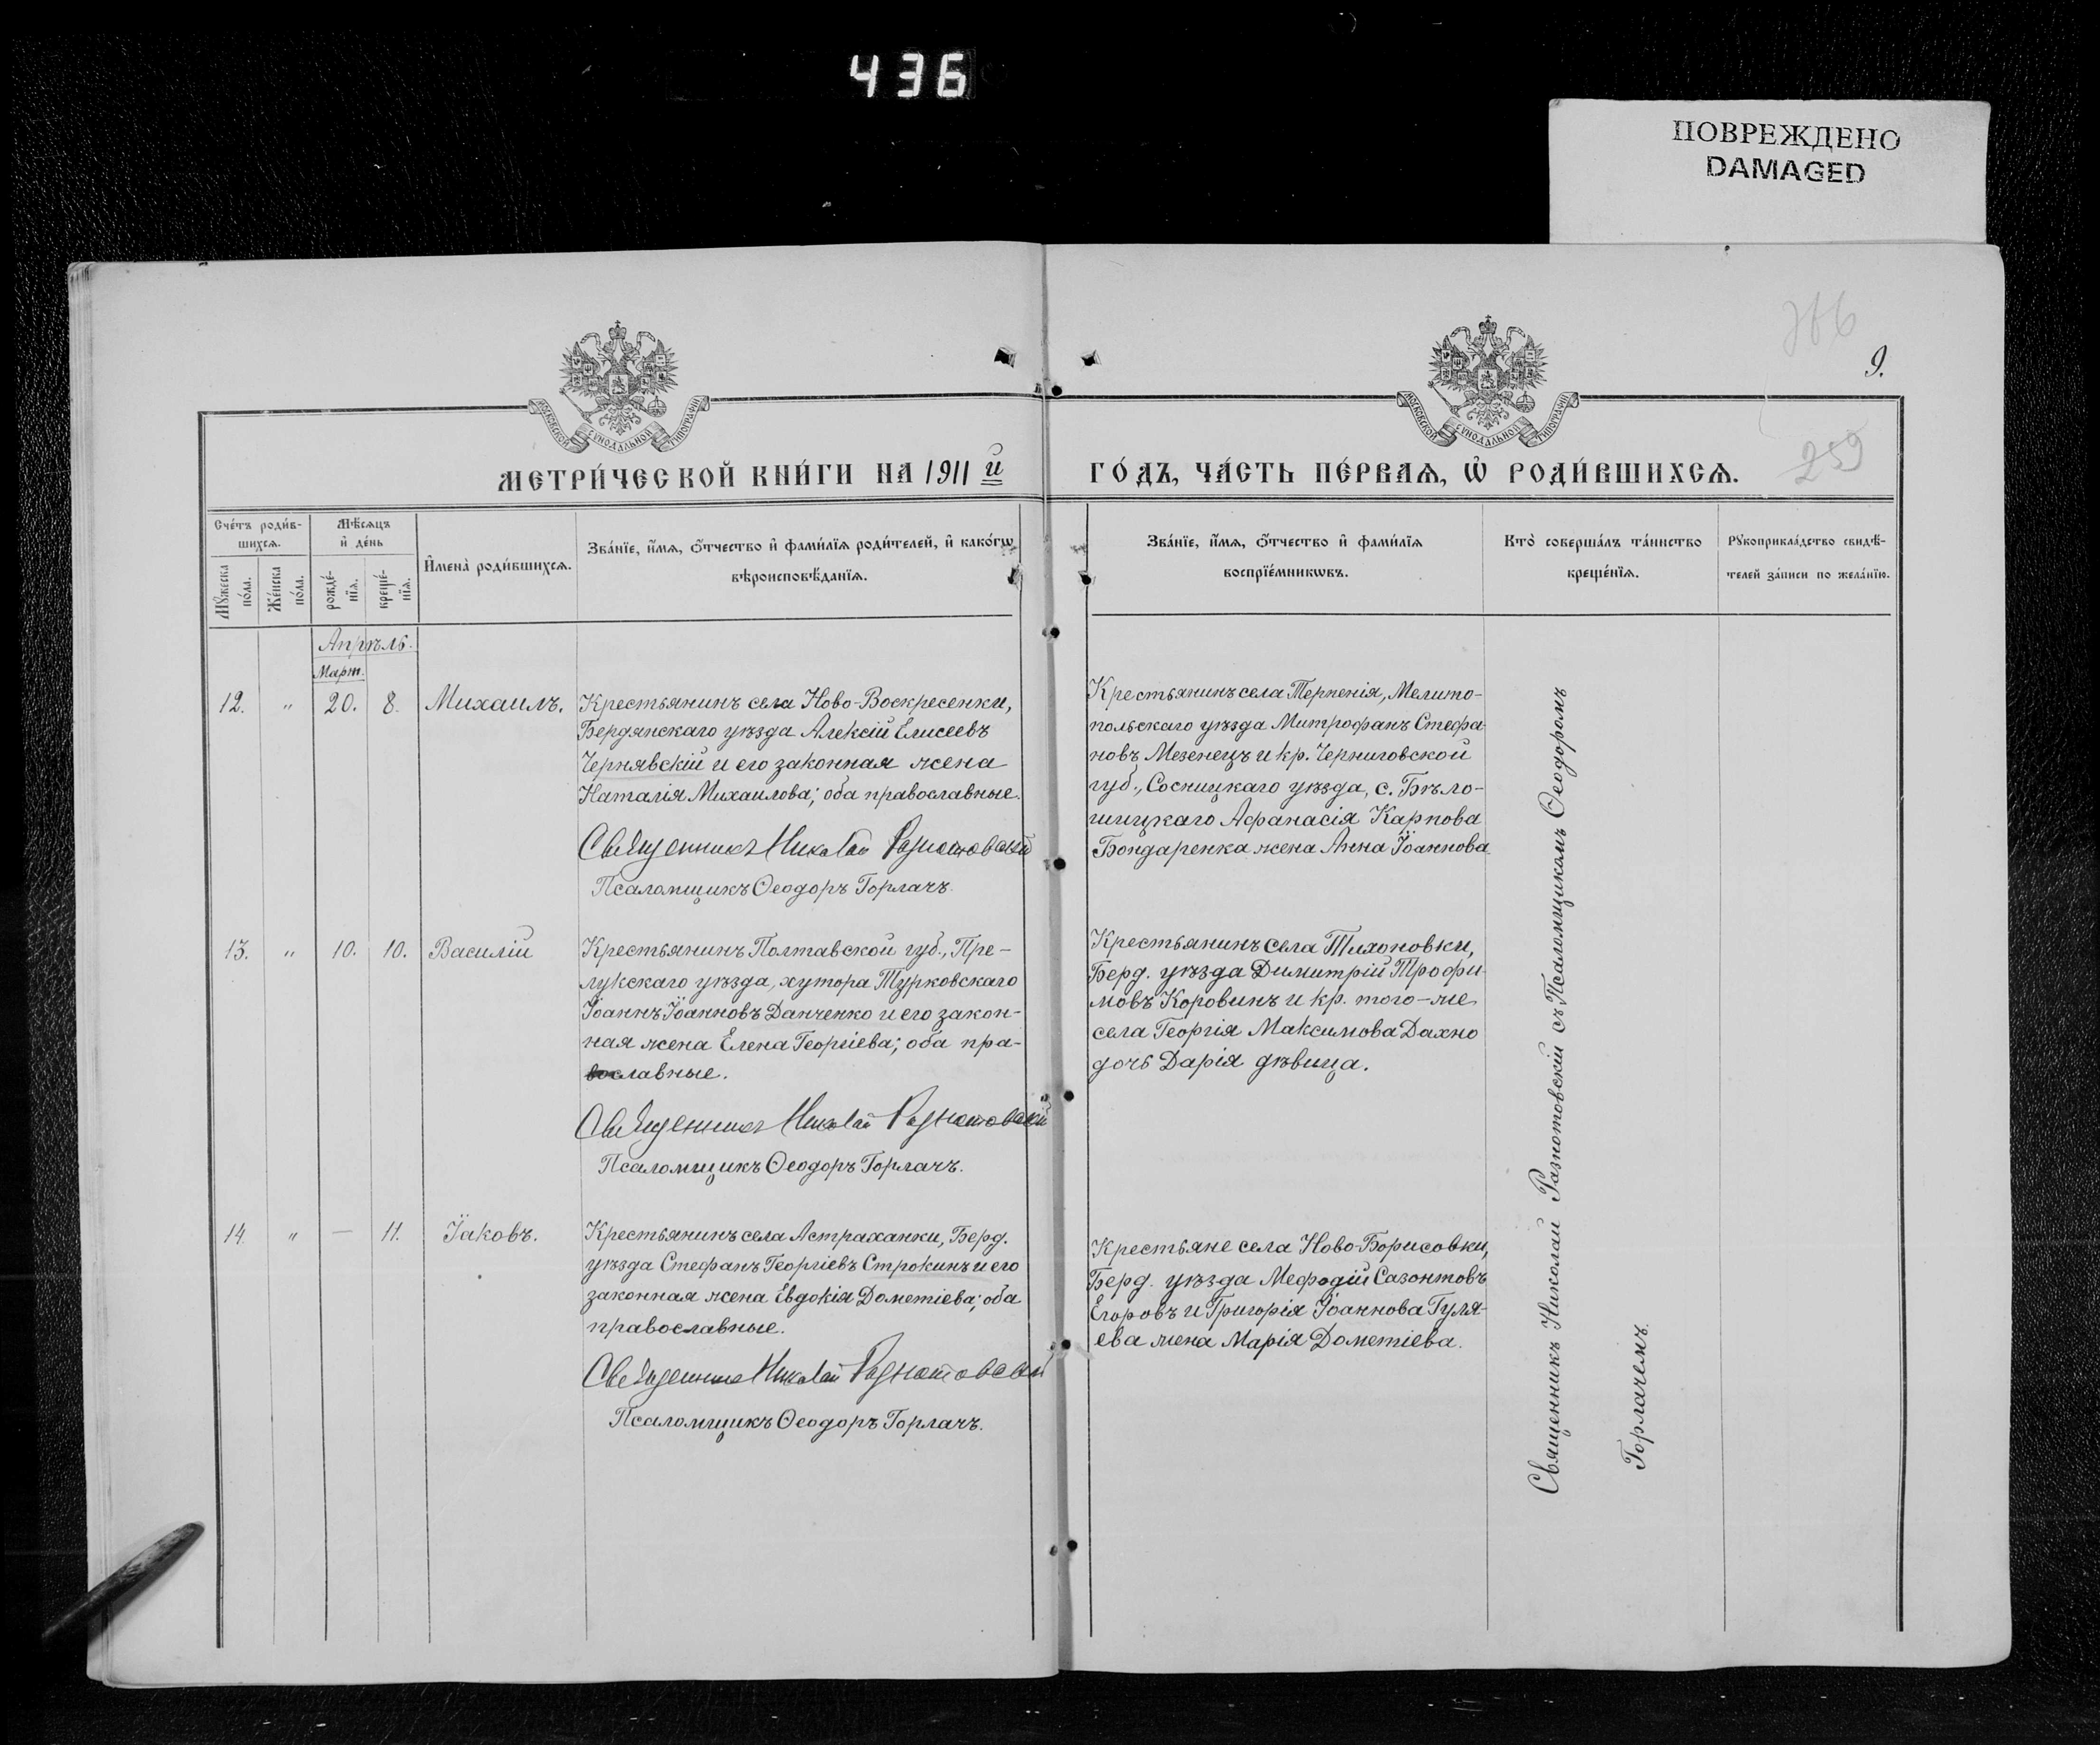 436
ПОВРЕЖДЕНО
DAMAGED
9.
259
МОСКОВСКОЙ СѴНОДАЛЬНОЙ ТИПОГРАФІИ
МОСКОВСКОЙ СѴНОДАЛЬНОЙ ТИПОГРАФІИ
МЕТРИ́ЧЕСКОЙ КНИ́ГИ НА 1911 й ГО́ДЪ, ЧА́СТЬ ПЕ́РВАѦ, Ѡ҆ РОДИ́ВШИХСѦ.
Сче́тъ роди́в-
шихсѧ.
Мꙋ́жеска
по́ла.
Же́нска
по́ла.
Мѣ́сѧцъ
и҆ де́нь
рожде́-
нїѧ.
креще́-
нїѧ.
И҆мена̀ роди́вшихсѧ.
Зва́нїе, и҆́мѧ, ѻ҆́тчество и҆ фами́лїѧ роди́телей, и҆ како́гѡ
вѣроисповѣ́данїѧ.
Зва́нїе, и҆́мѧ, ѻ҆́тчество и҆ фами́лїѧ
воспрїе́мникѡвъ.
Кто̀ соверша́лъ та́инство
креще́нїѧ.
Рꙋкоприкла́дство свидѣ́-
телей за́писи по жела́нїю.
Апрѣль.
Март.
12. " 20. 8. Михаилъ.
Крестьянинъ села Ново-Воскресенки,
Бердянскаго уѣзда Алексій Елисеевъ
Чернявскій и его законная жена
Наталія Михаилова; оба православные.
Священникъ Николай Разнотовскій
Псаломщикъ Ѳеодоръ Горлачъ.
Крестьянинъ села Терпенія, Мелито-
польскаго уѣзда Митрофанъ Стефа-
новъ Мезенецъ и кр. Черниговской
губ., Сосницкаго уѣзда, с. Бѣло-
шицкаго Афанасія Карпова
Бондаренка жена Анна Іоаннова
13. " 10. 10. Василій
Крестьянинъ Полтавской губ., Пре-
лукскаго уѣзда, хутора Турковскаго
Іоаннъ Іоанновъ Данченко и его закон-
ная жена Елена Георгіева; оба пра-
вославные.
Священникъ Николай Разнотовскій
Псаломщикъ Ѳеодоръ Горлачъ.
Крестьянинъ села Тихоновки,
Берд. уѣзда Димитрій Трофи-
мовъ Коровинъ и кр. того-же
села Георгія Максимова Дахно
дочь Дарія дѣвица.
14. " — 11. Іаковъ.
Крестьянинъ села Астраханки, Берд.
уѣзда Стефанъ Георгіевъ Строкинъ и его
законная жена Евдокія Дометіева; оба
православные.
Священникъ Николай Разнотовскій
Псаломщикъ Ѳеодоръ Горлачъ.
Крестьяне села Ново-Борисовки,
Берд. уѣзда Мефодій Сазонтовъ
Егоровъ и Григорія Іоаннова Гуля-
ева жена Марія Дометіева.
Священникъ Николай Разнотовскій съ Псаломщикомъ Ѳеодоромъ
Горлачемъ.